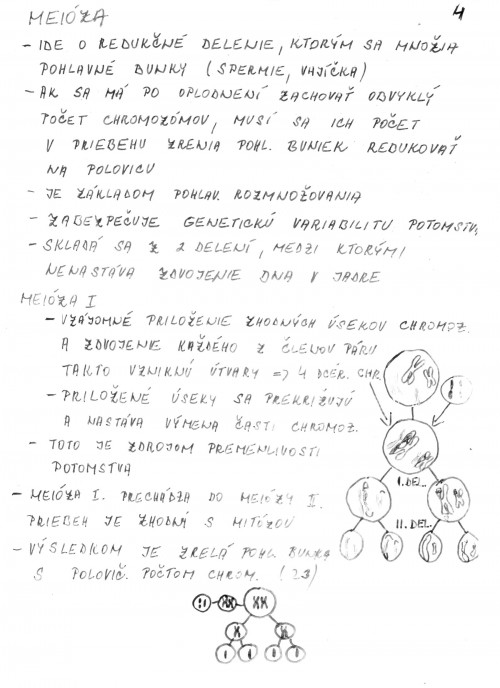 4
MEIÓZA
- IDE O REDUKČNÉ DELENIE, KTORÝM SA MNOŽIA
POHLAVNÉ BUNKY (SPERMIE, VAJÍČKA)
- AK SA MÁ PO OPLODNENÍ ZACHOVAŤ OBVYKLÝ
POČET CHROMOZÓMOV, MUSÍ SA ICH POČET
V PRIEBEHU ZRENIA POHL. BUNIEK REDUKOVAŤ
NA POLOVICU
- JE ZÁKLADOM POHLAV. ROZMNOŽOVANIA
- ZABEZPEČUJE GENETICKÚ VARIABILITU POTOMSTV.
- SKLADÁ SA Z 2 DELENÍ, MEDZI KTORÝMI
NENASTÁVA ZDVOJENIE DNA V JADRE
MEIÓZA I
- VZÁJOMNÉ PRILOŽENIE ZHODNÝCH ÚSEKOV CHROMOZ.
A ZDVOJENIE KAŽDÉHO Z ČLENOV PÁRU
TAKTO VZNIKNÚ ÚTVARY => 4 DCÉR. CHR.
- PRILOŽENÉ ÚSEKY SA PREKRIŽUJÚ
A NASTÁVA VÝMENA ČASTI CHROMOZ.
- TOTO JE ZDROJOM PREMENLIVOSTI
POTOMSTVA
I. DEL..
- MEIÓZA I. PRECHÁDZA DO MEIÓZY II.
PRIEBEH JE ZHODNÝ S MITÓZOU
II. DEL..
- VÝSLEDKOM JE ZRELÁ POHL. BUNKA
S POLOVIČ. POČTOM CHROM. (23)